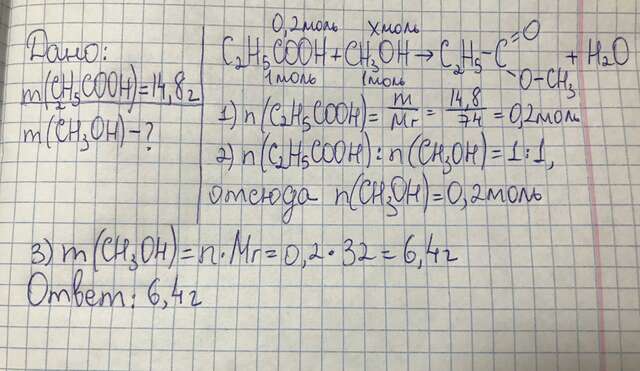 Дано:
m(C₂H₅COOH)=14,8г
m(CH₃OH)-?
0,2моль xмоль
C₂H₅COOH+CH₃OH→C₂H₅-C=O O-CH₃ +H₂O
1моль 1моль
1) n(C₂H₅COOH)=m/Mr=14,8/74=0,2моль
2) n(C₂H₅COOH):n(CH₃OH)=1:1,
отсюда n(CH₃OH)=0,2моль
3) m(CH₃OH)=n·Mr=0,2·32=6,4г
Ответ: 6,4г